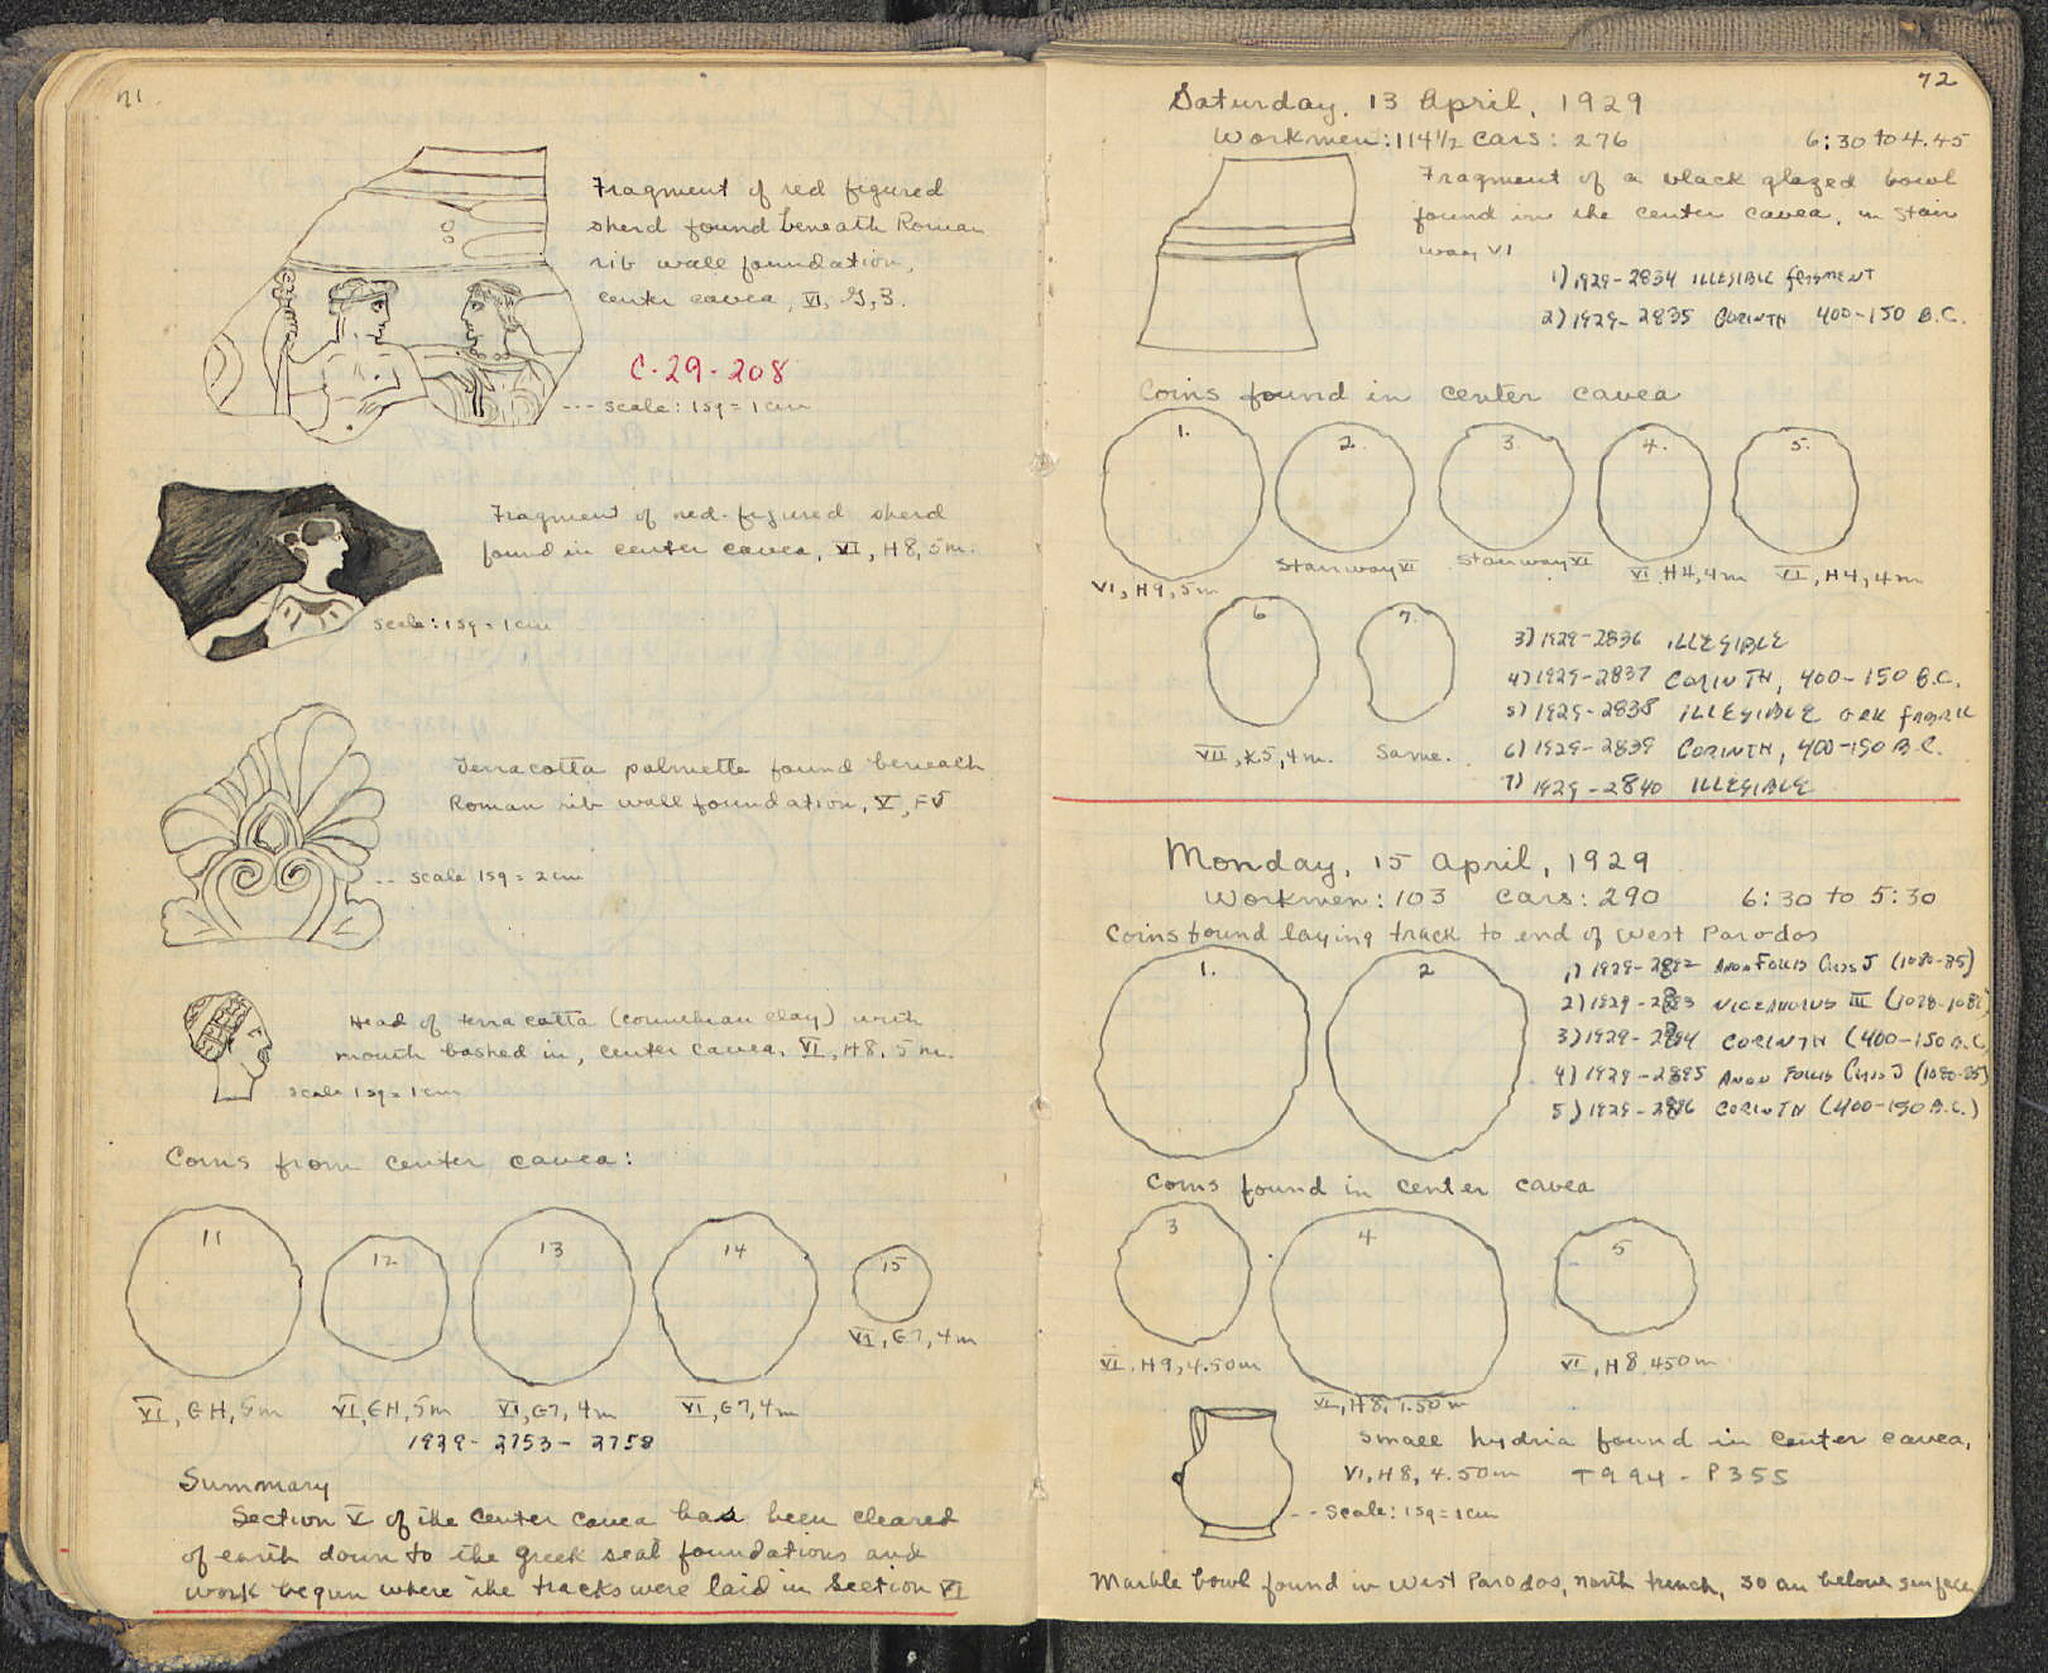 71
Fragment of red figured
sherd found beneath Roman
rib wall foundation,
center cavea, VI, G, 3.
C-29-208
--- scale: 1sq = 1cm
Fragment of red-figured sherd
found in center cavea, VI, H8, 5m.
scale: 1sq = 1cm
Terracotta palmette found beneath
Roman rib wall foundation, V, F5
-- scale 1sq = 2cm
Head of terracotta (corinthian clay) with
mouth bashed in, center cavea, VI, H8, 5m.
scale 1sq = 1cm
Coins from center cavea:
11 12 13 14 15
VI, G7, 4m
VI, GH, 5m VI, GH, 5m VI, G7, 4m VI, G7, 4m
1929-2753-2758
Summary
Section V of the center cavea has been cleared
of earth down to the greek seat foundations and
work begun where the tracks were laid in section VI
72
Saturday, 13 April, 1929
Workmen: 114½ Cars: 276 6:30 to 4.45
Fragment of a black glazed bowl
found in the center cavea, in stair
way VI
1) 1929-2834 ILLEGIBLE FRAGMENT
2) 1929-2835 CORINTH 400-150 B.C.
Coins found in center cavea
1. 2. 3. 4. 5.
VI, H9, 5m Stairway VI Stairway VI VI H4, 4m VI, H4, 4m
6 7.
VII, K5, 4m. Same.
3) 1929-2836 ILLEGIBLE
4) 1929-2837 CORINTH, 400-150 B.C.
5) 1929-2838 ILLEGIBLE GRK FABRIC
6) 1929-2839 CORINTH, 400-150 B.C.
7) 1929-2840 ILLEGIBLE
Monday, 15 April, 1929
Workmen: 103 Cars: 290 6:30 to 5:30
Coins found laying track to end of West Parodos
1. 2
1) 1929-2892 ANON FOLLIS CLASS J (1080-85)
2) 1929-2893 NICEPHORUS III (1078-1081)
3) 1929-2894 CORINTH (400-150 B.C.
4) 1929-2895 ANON FOLLIS CLASS J (1080-85)
5) 1929-2896 CORINTH (400-150 B.C.)
Coins found in center cavea
3 4 5
VI, H9, 4.50m VI, H8, 450m
VI, H8, 4.50m
Small hydria found in center cavea,
VI, H8, 4.50m T994-P355
-- Scale: 1sq = 1cm
Marble bowl found in West Parodos, north trench, 30 cm below surface